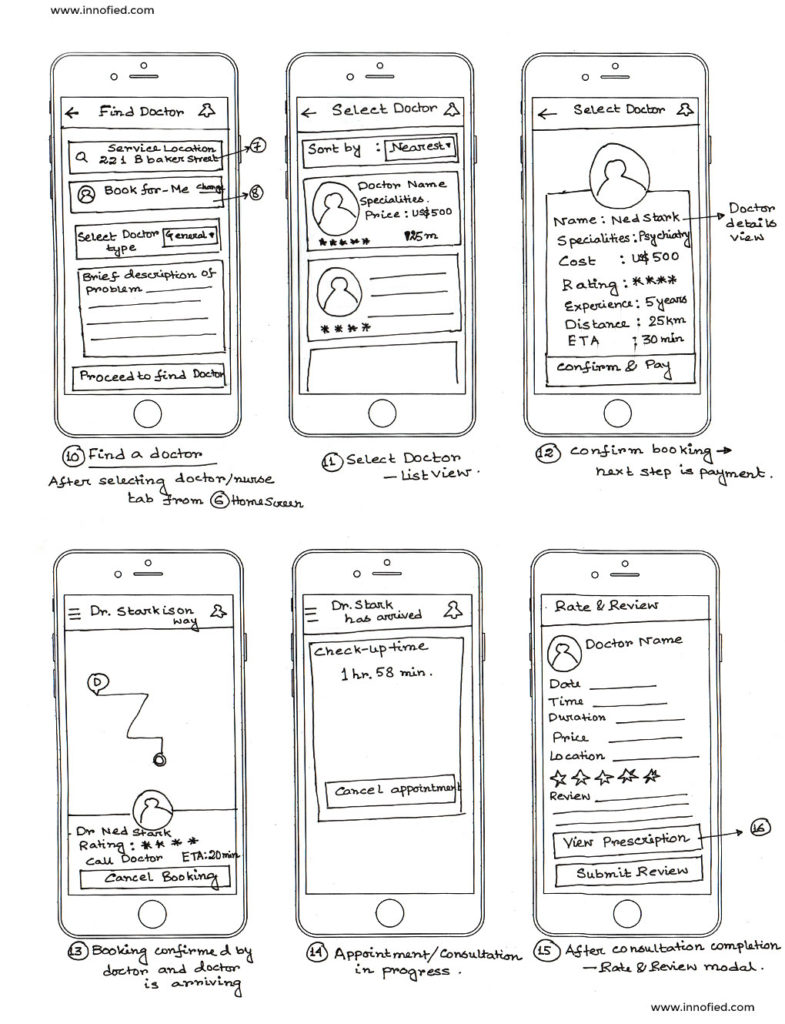 www.innofied.com
Find Doctor
Service Location
221 B baker Street
7
Book for-Me change
8
Select Doctor
type
General
Brief description of
problem
Proceed to find Doctor
10 Find a doctor
After selecting doctor/nurse
tab from 6 Home Screen
Select Doctor
Sort by : Nearest
Doctor Name
Specialities.
Price : US$500
25m
11 Select Doctor
- List view.
Select Doctor
Name : Ned Stark
Specialities : Psychiatry
Cost : US$500
Rating : ****
Experience : 5 years
Distance : 25km
ETA : 30 min
Confirm & Pay
Doctor
details
view
12 Confirm booking →
next step is payment.
Dr. Stark is on
way
D
Dr Ned Stark
Rating : ****
Call Doctor ETA: 20min
Cancel Booking
13 Booking confirmed by
doctor and doctor
is arriving
Dr. Stark
has arrived
Check-up time
1 hr. 58 min.
Cancel appointment
14 Appointment/Consultation
in progress.
Rate & Review
Doctor Name
Date
Time
Duration
Price
Location
Review
View Prescription
16
Submit Review
15 After consultation completion
- Rate & Review modal.
www.innofied.com